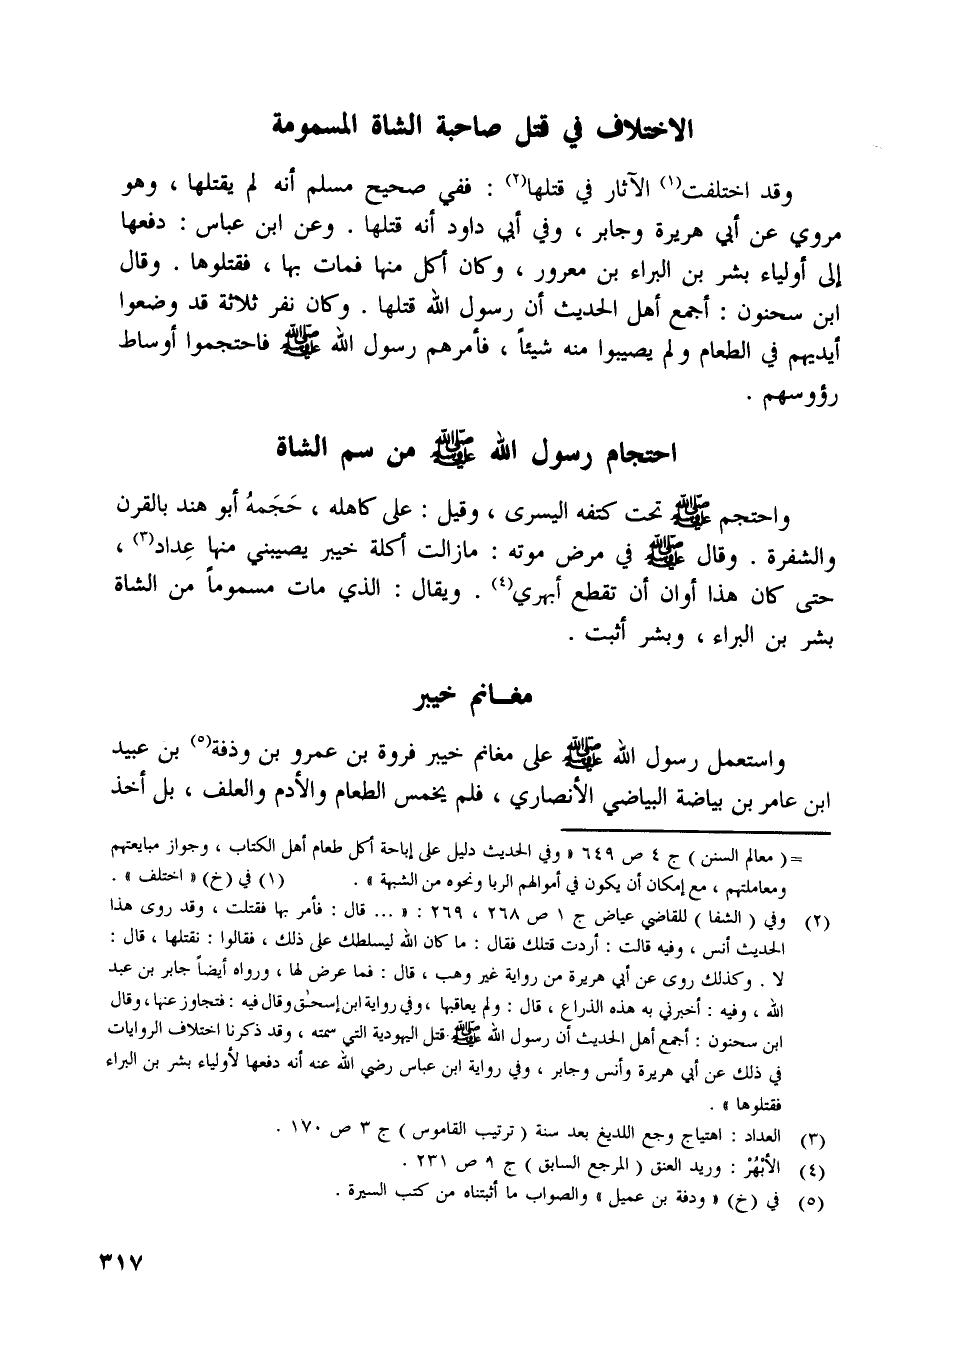 الاختلاف في قتل صاحبة الشاة المسمومة
وقد اختلفت(١) الآثار في قتلها(٢) : ففي صحيح مسلم أنه لم يقتلها ، وهو
مروي عن أبي هريرة وجابر ، وفي أبي داود أنه قتلها . وعن ابن عباس : دفعها
إلى أولياء بشر بن البراء بن معرور ، وكان أكل منها فمات بها ، فقتلوها . وقال
ابن سحنون : أجمع أهل الحديث أن رسول الله قتلها . وكان نفر ثلاثة قد وضعوا
أيديهم في الطعام ولم يصيبوا منه شيئاً ، فأمرهم رسول الله ﷺ فاحتجموا أوساط
رؤوسهم .
احتجام رسول الله ﷺ من سم الشاة
واحتجم ﷺ تحت كتفه اليسرى ، وقيل : على كاهله ، حَجَمهُ أبو هند بالقرن
والشفرة . وقال ﷺ في مرض موته : مازالت أكلة خيبر يصيبني منها عِداد(٣) ،
حتى كان هذا أوان أن تقطع أبهري(٤) . ويقال : الذي مات مسموماً من الشاة
بشر بن البراء ، وبشر أثبت .
مغـانم خيبر
واستعمل رسول الله ﷺ على مغانم خيبر فروة بن عمرو بن وذفة(٥) بن عبيد
ابن عامر بن بياضة البياضي الأنصاري ، فلم يخمس الطعام والأدم والعلف ، بل أخذ
=( معالم السنن ) ج ٤ ص ٦٤٩ « وفي الحديث دليل على إباحة أكل طعام أهل الكتاب ، وجواز مبايعتهم
ومعاملتهم ، مع إمكان أن يكون في أموالهم الربا ونحوه من الشبهة » . (١) في (خ) « اختلف » .
(٢) وفي ( الشفا ) للقاضي عياض ج ١ ص ٢٦٨ ، ٢٦٩ : « ... قال : فأمر بها فقتلت ، وقد روى هذا
الحديث أنس ، وفيه قالت : أردت قتلك فقال : ما كان الله ليسلطك على ذلك ، فقالوا : نقتلها ، قال :
لا . وكذلك روى عن أبي هريرة من رواية غير وهب ، قال : فما عرض لها ، ورواه أيضاً جابر بن عبد
الله ، وفيه : أخبرني به هذه الذراع ، قال : ولم يعاقبها ، وفي رواية ابن إسحٰق وقال فيه : فتجاوز عنها، وقال
ابن سحنون : أجمع أهل الحديث أن رسول الله ﷺ قتل اليهودية التي سمته ، وقد ذكرنا اختلاف الروايات
في ذلك عن أبي هريرة وأنس وجابر ، وفي رواية ابن عباس رضي الله عنه أنه دفعها لأولياء بشر بن البراء
فقتلوها » .
(٣) العداد : اهتياج وجع اللديغ بعد سنة ( ترتيب القاموس ) ج ٣ ص ١٧٠ .
(٤) الأَبْهُرْ : وريد العنق ( المرجع السابق ) ج ٩ ص ٢٣١ .
(٥) في (خ) « ودفة بن عميل » والصواب ما أثبتناه من كتب السيرة .
٣١٧